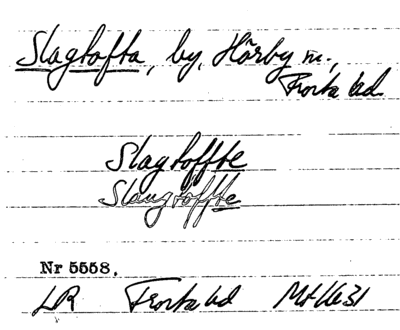 Slagtofta, by, Hörby sn.,
Frosta hd
Slagtoffte
Slaugtoffte
Nr 5558.
LR Frosta hd